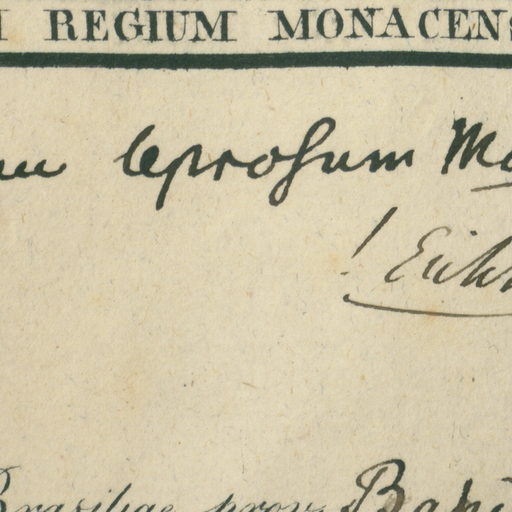 REGIUM MONACENS
leprosum Ma
! Eichl
Brasiliae prov. Bahi